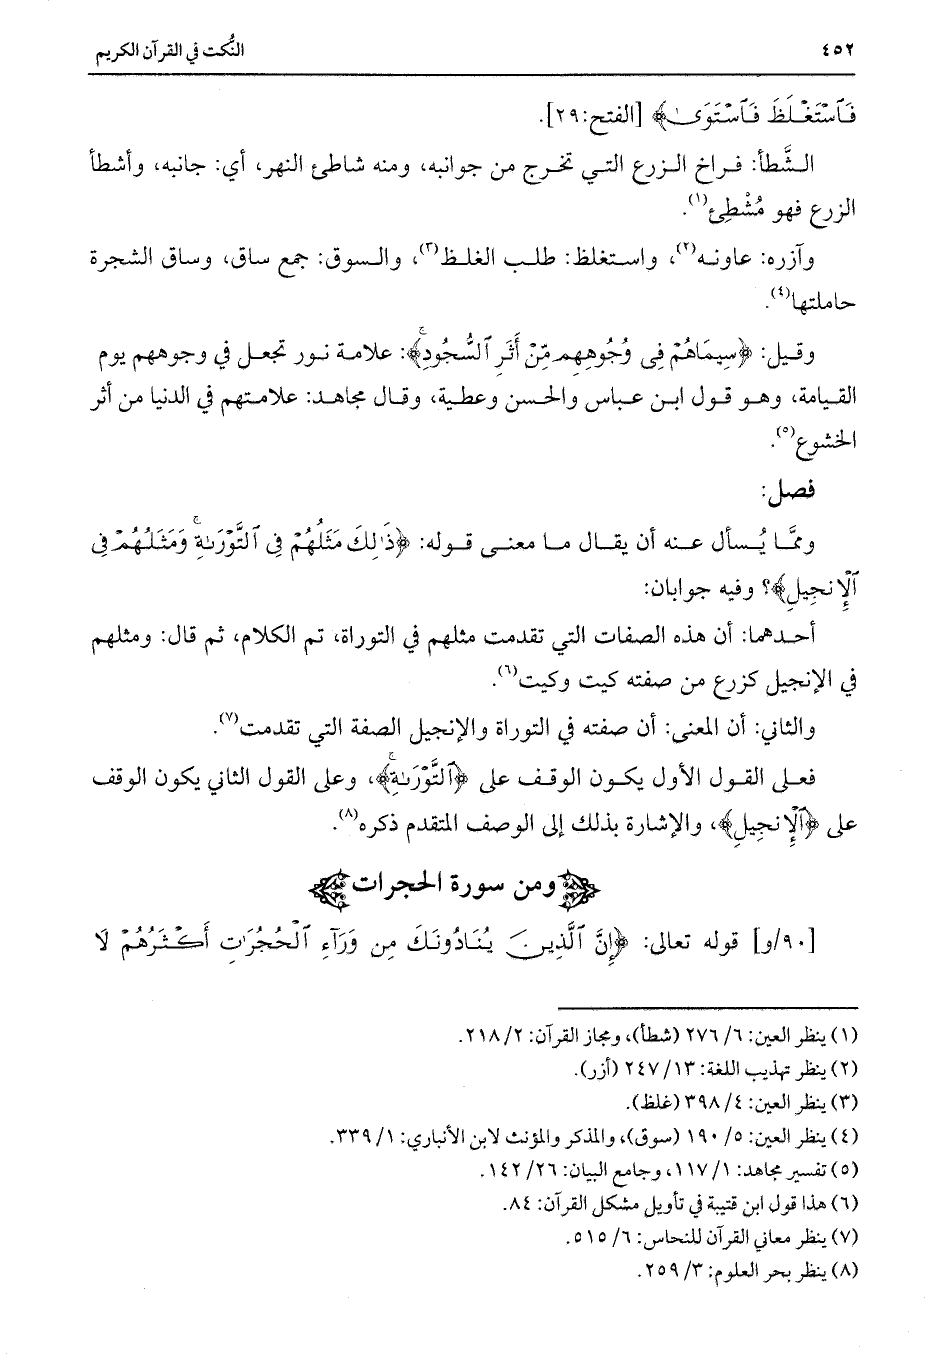 ٤٥٢ النُّكت في القرآن الكريم
فَٱسْتَغْلَظَ فَٱسْتَوَىٰ﴾ [الفتح:٢٩].
الشَّطأ: فراخ الزرع التي تخرج من جوانبه، ومنه شاطئ النهر، أي: جانبه، وأشطأ
الزرع فهو مُشْطِئ(١).
وآزره: عاونه(٢)، واستغلظ: طلب الغلظ(٣)، والسوق: جمع ساق، وساق الشجرة
حاملتها(٤).
وقيل: ﴿سِيمَاهُمْ فِى وُجُوهِهِم مِّنْ أَثَرِ ٱلسُّجُودِ ۚ﴾: علامة نور تجعل في وجوههم يوم
القيامة، وهو قول ابن عباس والحسن وعطية، وقال مجاهد: علامتهم في الدنيا من أثر
الخشوع(٥).
فصل:
وممَّا يُسأل عنه أن يقال ما معنى قوله: ﴿ذَٰلِكَ مَثَلُهُمْ فِى ٱلتَّوْرَىٰةِ ۚ وَمَثَلُهُمْ فِى
ٱلْإِنجِيلِ﴾؟ وفيه جوابان:
أحدهما: أن هذه الصفات التي تقدمت مثلهم في التوراة، تم الكلام، ثم قال: ومثلهم
في الإنجيل كزرع من صفته كيت وكيت(٦).
والثاني: أن المعنى: أن صفته في التوراة والإنجيل الصفة التي تقدمت(٧).
فعلى القول الأول يكون الوقف على ﴿ٱلتَّوْرَىٰةِ ۚ﴾، وعلى القول الثاني يكون الوقف
على ﴿ٱلْإِنجِيلِ﴾، والإشارة بذلك إلى الوصف المتقدم ذكره(٨).
ومن سورة الحجرات
[٩٠/و] قوله تعالى: ﴿إِنَّ ٱلَّذِينَ يُنَادُونَكَ مِن وَرَآءِ ٱلْحُجُرَٰتِ أَكْثَرُهُمْ لَا
(١) ينظر العين: ٦/ ٢٧٦ (شطأ)، ومجاز القرآن: ٢/ ٢١٨.
(٢) ينظر تهذيب اللغة: ١٣/ ٢٤٧ (أزر).
(٣) ينظر العين: ٤/ ٣٩٨ (غلظ).
(٤) ينظر العين: ٥/ ١٩٠ (سوق)، والمذكر والمؤنث لابن الأنباري: ١/ ٣٣٩.
(٥) تفسير مجاهد: ١/ ١١٧، وجامع البيان: ٢٦/ ١٤٢.
(٦) هذا قول ابن قتيبة في تأويل مشكل القرآن: ٨٤.
(٧) ينظر معاني القرآن للنحاس: ٦/ ٥١٥.
(٨) ينظر بحر العلوم: ٣/ ٢٥٩.